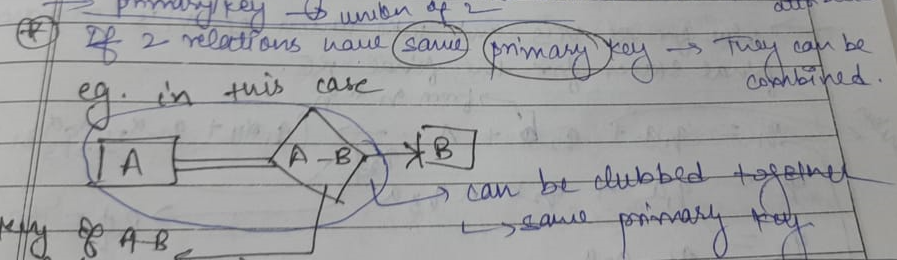 → primary key → union of 2
* If 2 relations have same primary key → They can be
combined.
eg. in this case
A A-B B
→ can be clubbed together
↳ same primary key
key of A-B